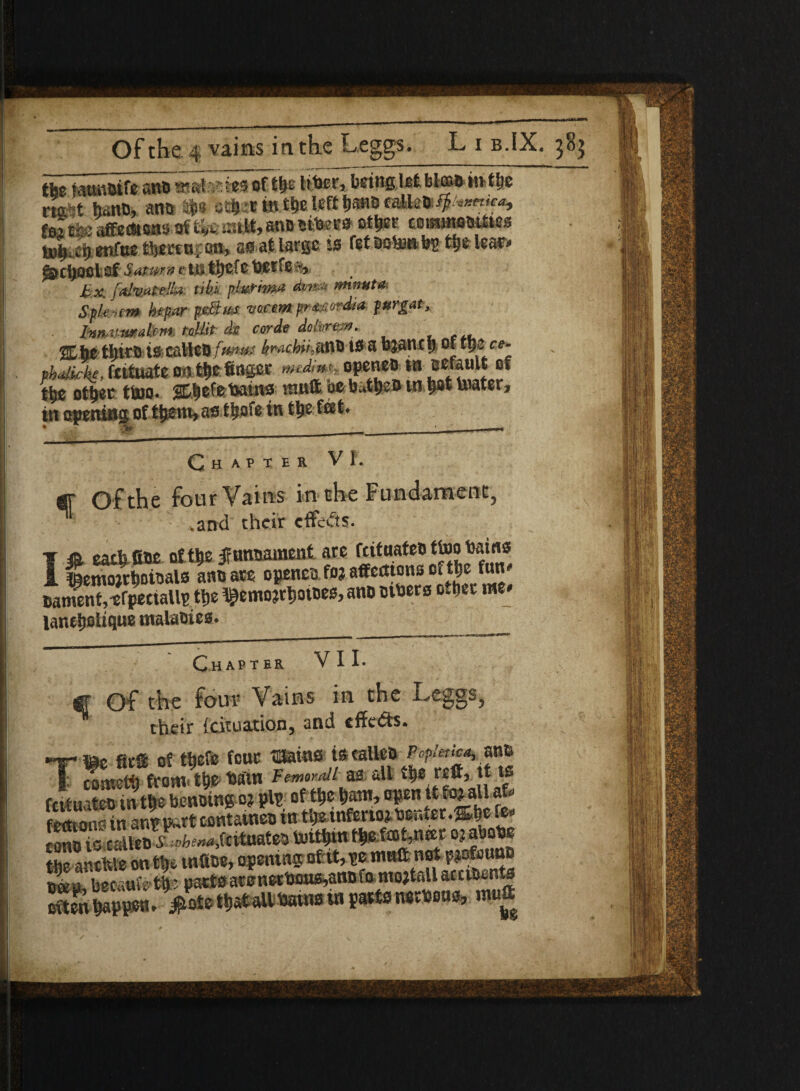 Of the 4 vains in the Leggs. LIB.IX. 383
the iaundise and maladies of the liver, being let blood in the
right hand, and the other in the left hand called splenetica,
for the affections of the milt, and divers other commodities
which ensue thereupon, as at large is set down by the lear-
School of Saturn e in these verses,
Ex salvatella tibi plurima dona minuta
Splenem hepar pectus vocem præcordia purgat,
Innaturalem tollit de corde dolorem.
The third is called funus brachii, and is a branch of the ce-
phalicke, scituate on the finger medius, opened in default of
the other two. These vains must be bathed in hot water,
in opening of them, as those in the feet.
CHAPTER VI.
¶ Of the four Vains in the Fundament,
and their effects.
IN each side of the Fundament are scituated two vains
Hemorrhoidals and are opened for affections of the fun-
dament, especially the Hemorrhoides, and divers other me-
lancholique maladies.
CHAPTER VII.
¶ Of the four Vains in the Leggs,
their scituation, and effects.
THe first of these four Vains is called Popletica, and
cometh from the vain Femorall as all the rest, it is
scituated in the bending or ply of the ham, open it for all af-
fections in any part contained in the inferior venter. The se-
cond is called Saphena, scituated within the foot, neer or above
the anckle on the inside, opening of it, ye must not profound
deep, because the parts are nervous, and so mortall accidents
often happen. Note that all vains in parts nervous, must
be